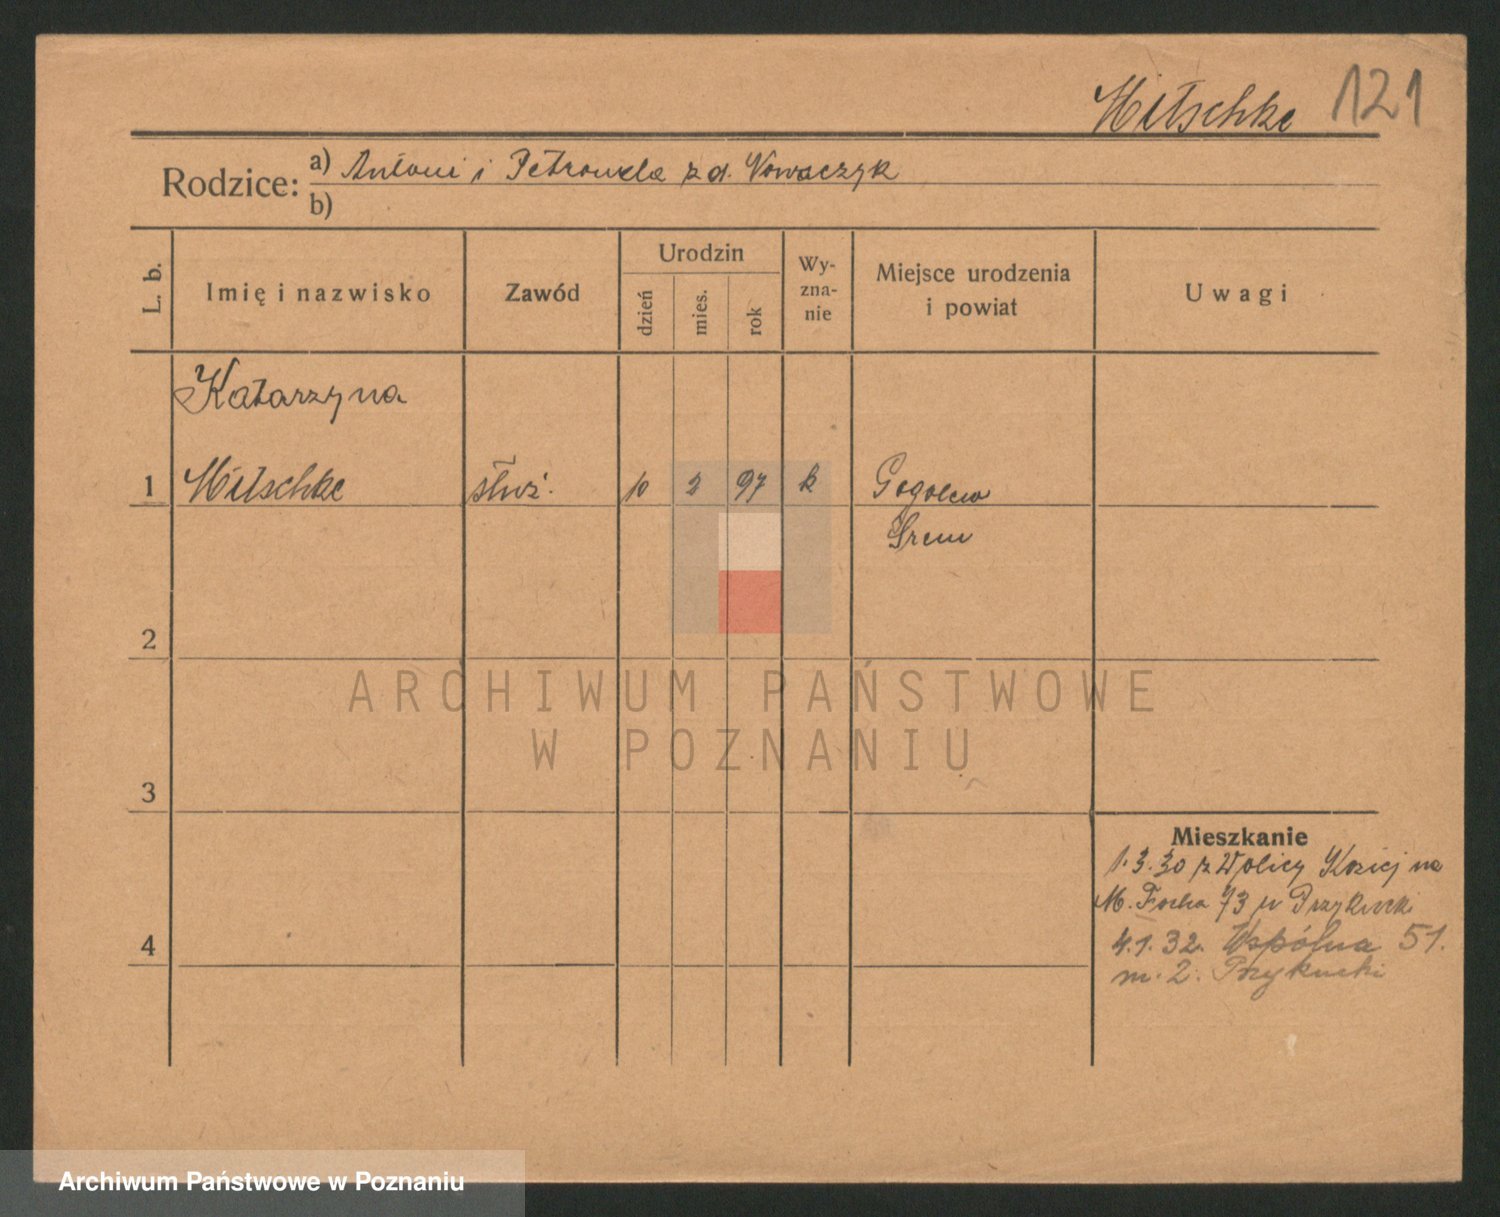 Mitschke 121
Rodzice: a) Antoni i Petronela z d. Nowaczyk
b)
L. b.
Imię i nazwisko
Zawód
Urodzin
dzień
mies.
rok
Wy-
zna-
nie
Miejsce urodzenia
i powiat
Uwagi
Katarzyna
1 Mitschke służ. 10 2 97 k Gogolewo
Śrem
2
ARCHIWUM PAŃSTWOWE
W POZNANIU
3
Mieszkanie
1.3.30 z Wolicy Koziej na
M. Focha 73 u Przykucki
4 4.1.32. Wspólna 51.
m. 2. Przykucki
Archiwum Państwowe w Poznaniu